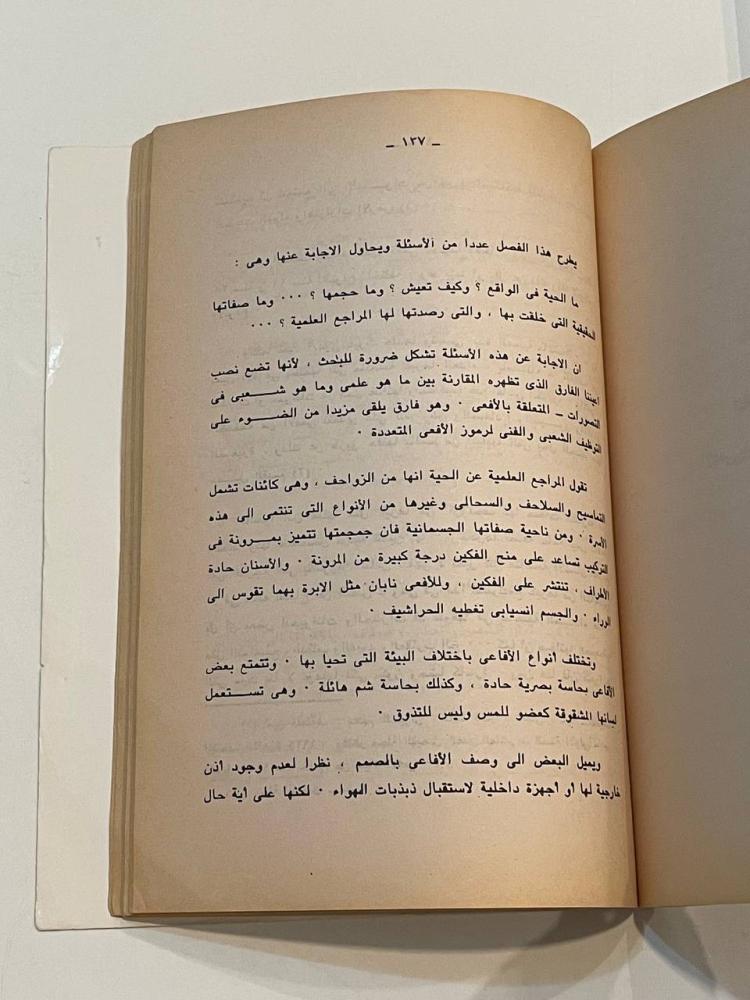 ـ ١٣٧ ـ
يطرح هذا الفصل عددا من الأسئلة ويحاول الاجابة عنها وهى :
ما الحية فى الواقع ؟ وكيف تعيش ؟ وما حجمها ؟ ٠٠٠ وما صفاتها
الحقيقية التى خلقت بها ، والتى رصدتها لها المراجع العلمية ؟ ٠٠٠
ان الاجابة عن هذه الأسئلة تشكل ضرورة للبحث ، لأنها تضع نصب
أعيننا الفارق الذى تظهره المقارنة بين ما هو علمى وما هو شـــعبى فى
التصورات ـ المتعلقة بالأفعى ٠ وهو فارق يلقى مزيدا من الضـــوء على
التوظيف الشعبى والفنى لرموز الأفعى المتعددة ٠
تقول المراجع العلمية عن الحية انها من الزواحف ، وهى كائنات تشمل
التماسيح والسلاحف والسحالى وغيرها من الأنواع التى تنتمى الى هذه
الأسرة ٠ ومن ناحية صفاتها الجسمانية فان جمجمتها تتميز بمـــرونة فى
التركيب تساعد على منح الفكين درجة كبيرة من المرونة ٠ والأسنان حادة
الأطراف ، تنتشر على الفكين ، وللأفعى نابان مثل الابرة بهما تقوس الى
الوراء ٠ والجسم انسيابى تغطيه الحراشيف ٠
وتختلف أنواع الأفاعى باختلاف البيئة التى تحيا بها ٠ وتتمتع بعض
الأفاعى بحاسة بصرية حادة ، وكذلك بحاسة شم هائلة ٠ وهى تســـتعمل
لسانها المشقوقة كعضو للمس وليس للتذوق ٠
ويميل البعض الى وصف الأفاعى بالصمم ، نظرا لعدم وجود أذن
خارجية لها أو أجهزة داخلية لاستقبال ذبذبات الهواء ٠ لكنها على أية حال